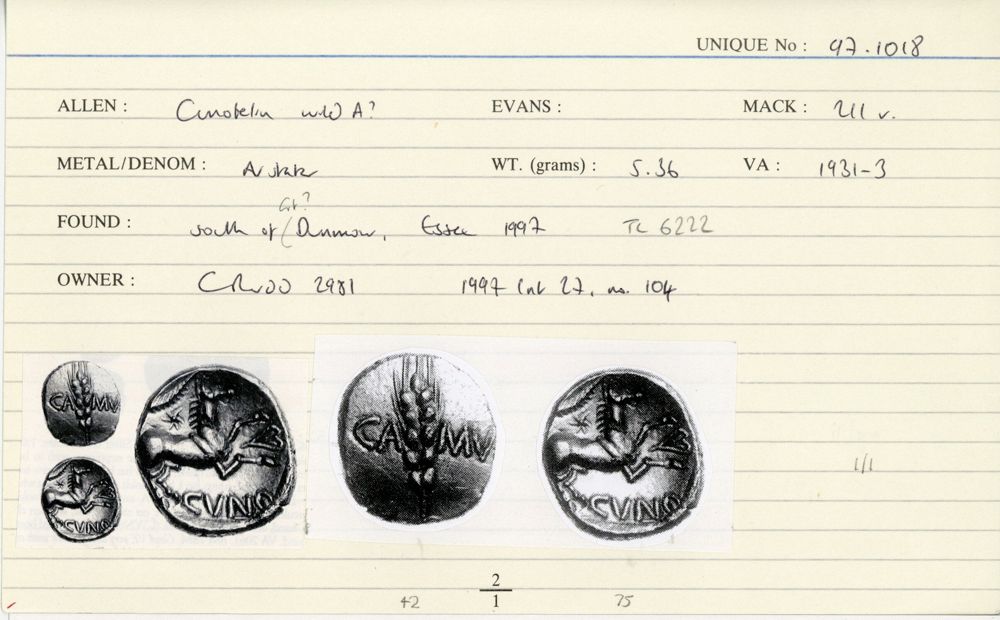 UNIQUE No : 97.1018
ALLEN : Cunobelin wild A? EVANS : MACK : 211 v.
METAL/DENOM : AV stater WT. (grams) : 5.36 VA : 1931-3
Gt?
FOUND : south of (Dunmow, Essex 1997 TL 6222
OWNER : CR 2981 1997 27, no. 104
CA MV
CUNO
CA MV
CUNO
CUNO
1/1
2
42 1 75